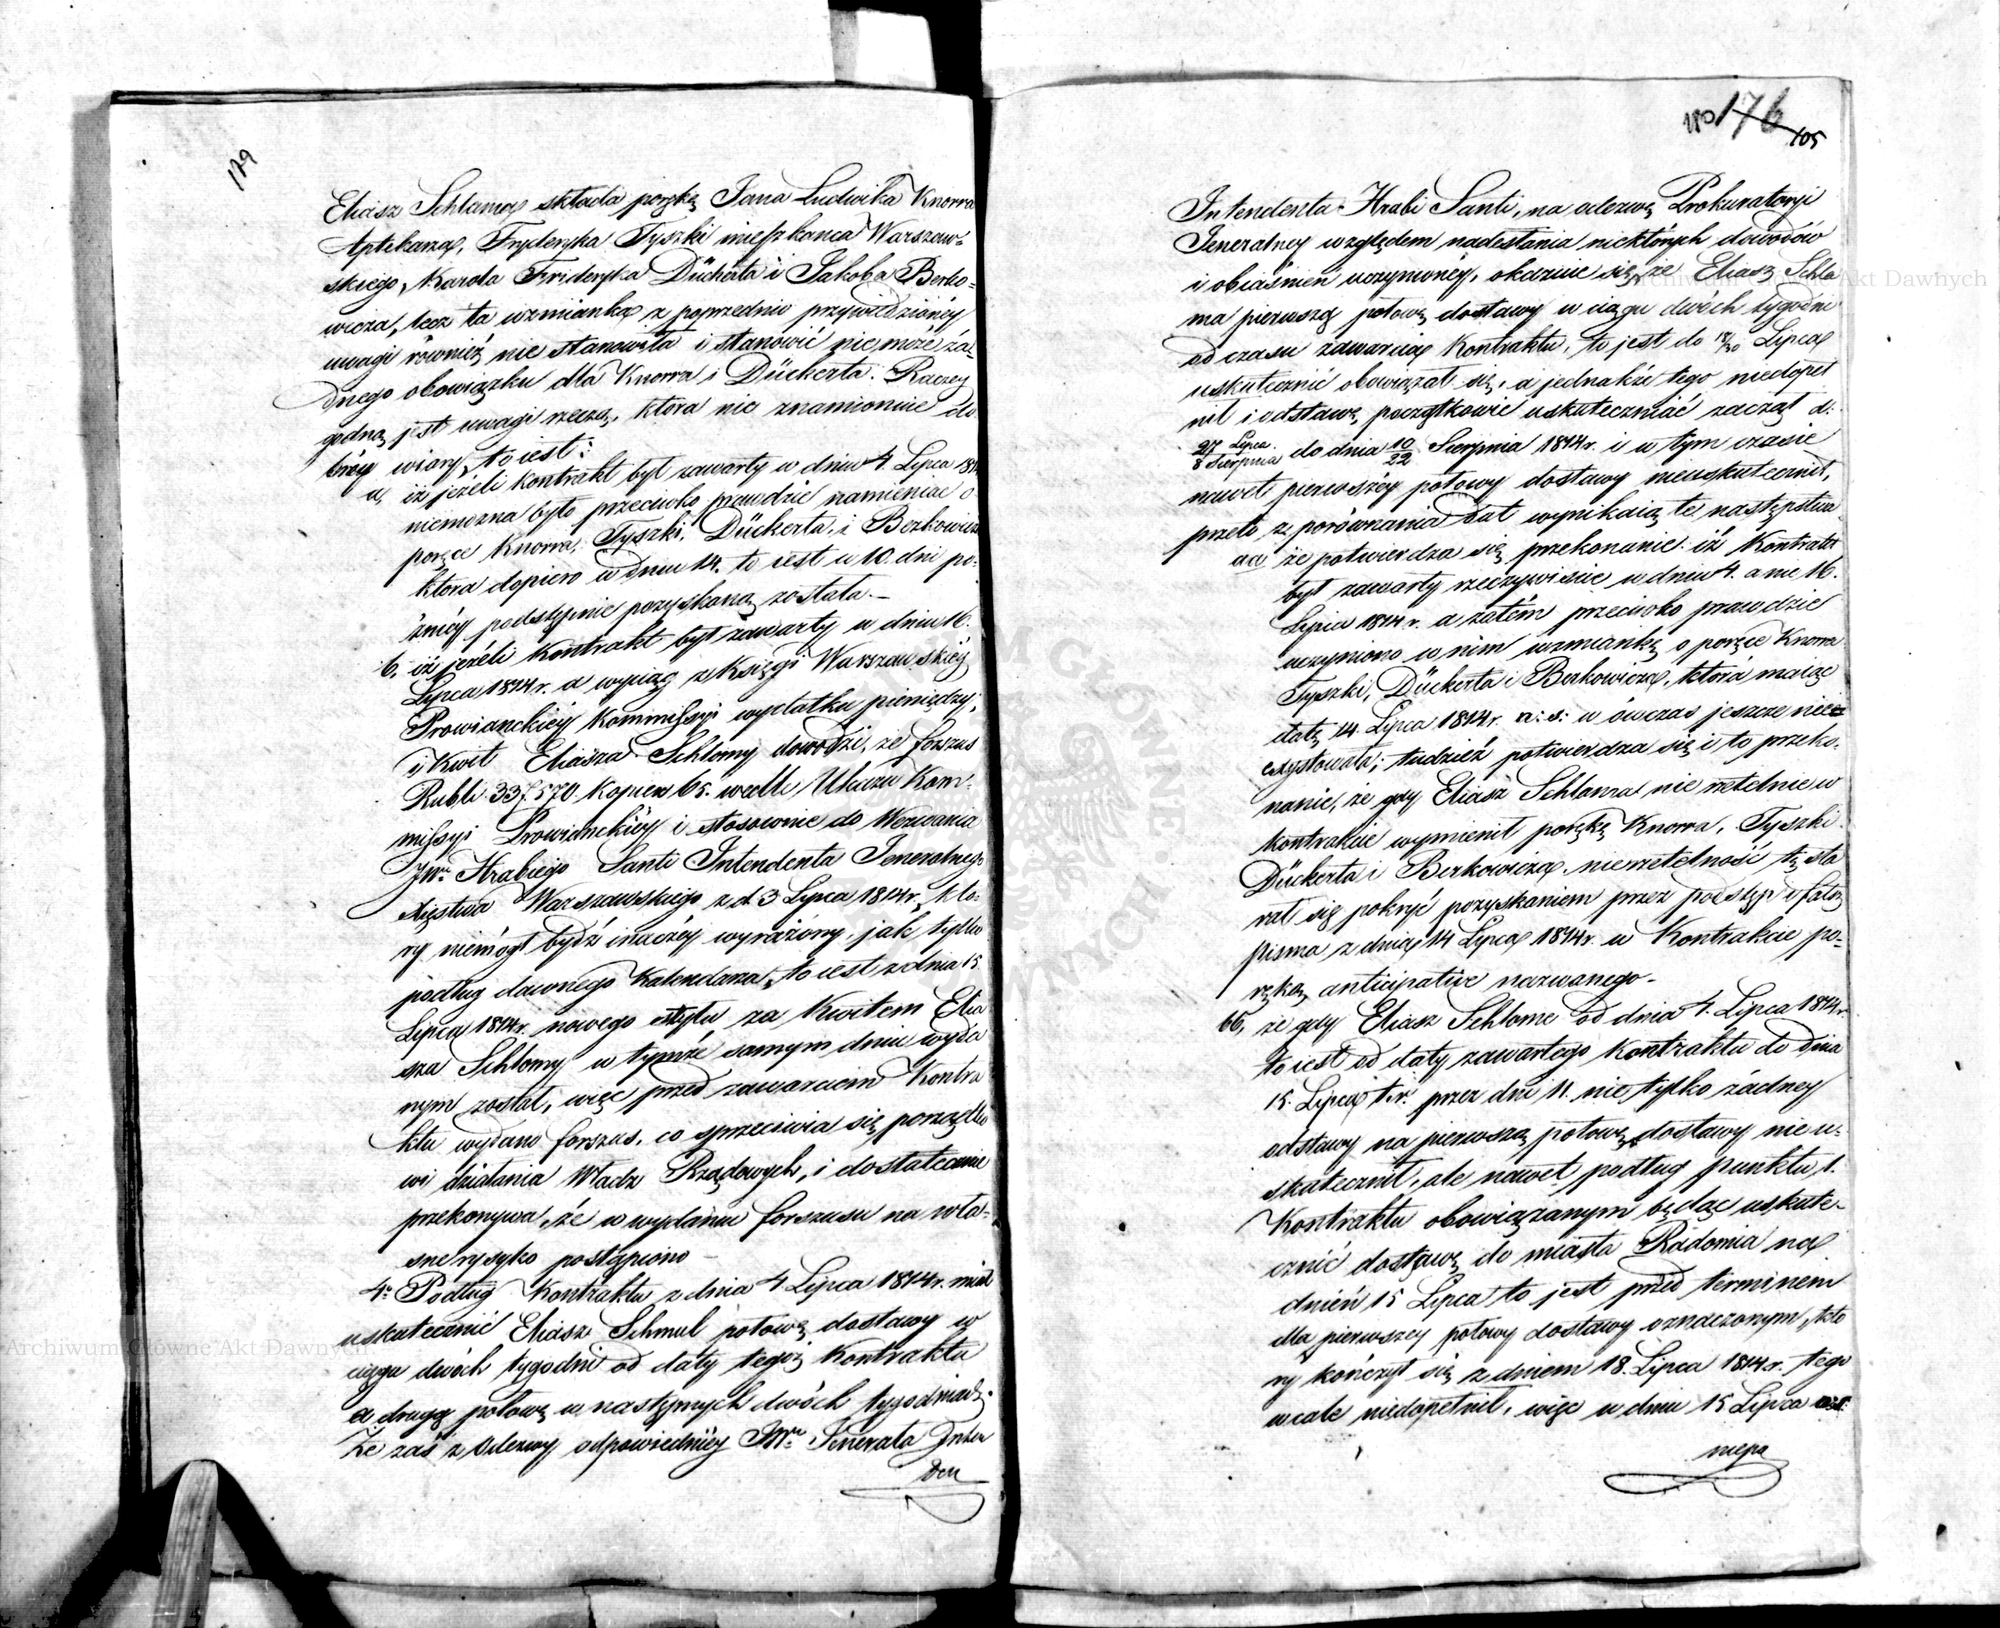 179
Eliasz Schlama składa porękę Jana Ludwika Knorra
Aptekarza, Fryderyka Tyszki mieszkanca Warszaw-
skiego, Karola Frideryka Dückerta i Jakoba Berko-
wicza, lecz ta wzmianka z poprzednio przywiedzionéy
uwagi również nie stanowiła i stanowić nie może ża-
dnego obowiązku dla Knorra i Dückerta. Raczey
godną jest uwagi rzeczą, która nic znamionuie do
bréy wiary, to iest:
a, iż jeżeli kontrakt był zawarty w dniu 4. Lipca 1814
niemożna było przeciwko prawdzie namieniac o
poręce Knorra, Tyszki, Dückerta, i Berkowicza
ktora dopiero w dniu 14. to iest w 10. dni po-
żniéy podstępnie pozyskaną została. –
b, iż jeżeli kontrakt był zawarty w dniu 16.
Lipca 1814 r. a wyciąg z Księgi Warszawskiéy
Prowianckiéy Kommissyi wydatku pieniędzy,
i Kwit Eliasza Schlomy dowodzi, że forszus
Rubli 337,570 Kopiek 65. wedle Ukazu Kom-
missyi Prowianckiéy i stosownie do Wezwania
JWo Hrabiego Santi Intendenta Jeneralnego
Xięstwa Warszawskiego z d. 3 Lipca 1814 r. któ-
ry niemógł bydź inaczéy wyrażony, jak tylko
podług dawnego Kalendarza, to iest z dnia 15
Lipca 1814 r. nowego stylu za Kwitem Elia
sza Schlomy w tymże samym dniu wyda
nym został, więc przed zawarciem Kontra
ktu wydano forszus, co sprzeciwia się porządko
wi działania Władz Rządowych, i dostatecznie
przekonywa, że w wydaniu forszusu na wła-
sne rysyko postąpiono –
4o Podług Kontraktu z dnia 4 Lipca 1814 r. miał
uskutecznić Eliasz Schmul połowę dostawy w
ciągu dwóch tygodni od daty tegoż Kontraktu
a drugą połowę w następnych dwóch tygodniach.
Że zaś z Odezwy odpowiedniéy JWo Jenerała Inten
den
180 176 105
Intendenta Hrabi Santi, na odezwę Prokuratoryi
Jeneralney względem nadesłania niektórych dowodów
i obiaśnień uczynionéy, okazuie się, że Eliasz Schlo
ma pierwszą połowę dostawy w ciągu dwóch tygodni
od czasu zawarcia Kontraktu, to jest do 18/30 Lipca
uskutecznić obowiązał się, a jednakże tego niedopeł
nił i odstawę początkowie uskuteczniać zaczął d:
27 Lipca / 8 Sierpnia do dnia 10/22 Sierpnia 1814 r. i w tym czasie
nawet pierwszéy połowy dostawy nieuskutecznił,
przeto z porównania dat wynikaią te następstwa
aa że potwierdza się przekonanie: iż Kontrakt
był zawarty rzeczywiście w dniu 4. a nie 16.
Lipca 1814 r. a zatém przeciwko prawdzie
uczyniono w nim wzmiankę o poręce Knorra
Tyszki, Dückerta i Berkowicza, która maiąc
datę 14. Lipca 1814 r. n: s: w ówczas jeszcze nie
exystowała; tudzież potwierdza się i to przeko-
nanie, że gdy Eliasz Schloma nie rzetelnie w
kontrakcie wymienił porękę Knorra, Tyszki
Dückerta i Berkowicza, nierzetelność tę sta
rał się pokryć pozyskaniem przez podstęp i fałsz
pisma z dnia 14 Lipca 1814 r. w Kontrakcie po-
ręką, anticipative nazwanego. –
bb, że gdy Eliasz Schlome od dnia 4. Lipca 1814 r.
to iest od daty zawartego kontraktu do dnia
15. Lipca t. r. przez dni 11. nie tylko żadney
odstawy na pierwszą połowę dostawy nie u-
skutecznił, ale nawet podług punktu 1.
Kontraktu obowiązanym będąc uskute-
cznić dostawę do miasta Radomia na
dzień 15 Lipca to jest przed terminem
dla pierwszey połowy dostawy oznaczonym, któ
ry kończył się z dniem 18. Lipca 1814 r. tego
wcale niedopełnił, więc w dniu 15 Lipca
niepo
Archiwum Główne Akt Dawnych
Archiwum Główne Akt Dawnych